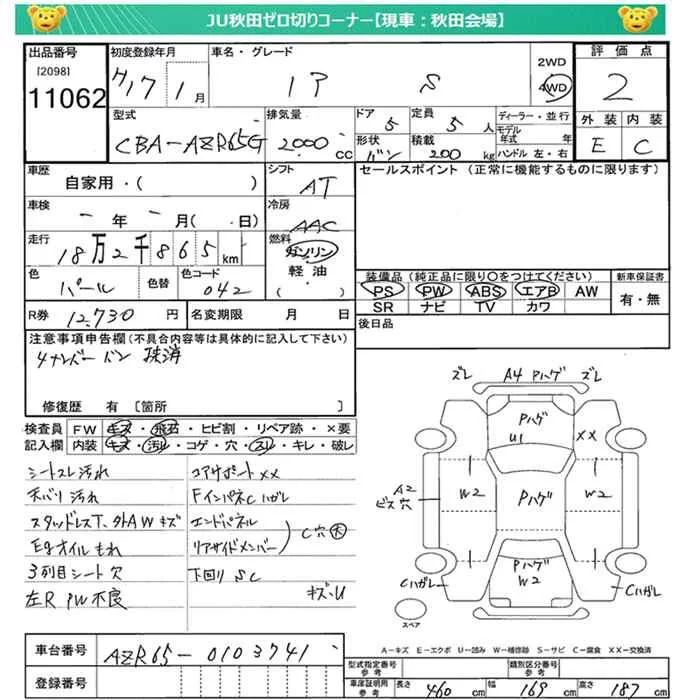 JU秋田ゼロ切りコーナー【現車：秋田会場】
出品番号 初度登録年月 車名・グレード 2WD 評価点
[2098] H17 1月 4WD 2
11062
型式 排気量 ドア 定員 ディーラー・並行 外装 内装
モデル年式 年
CBA-AZR65G 2000cc 5 5人 ハンドル 左・右 E C
形状 積載
バン 200kg
車歴 シフト セールスポイント（正常に機能するものに限ります）
自家用・( ) AT
車検 冷房
－年－月(・日) AAC
走行 燃料
18万2千865km ガソリン
軽油
( )
色 色替 色コード 装備品（純正品に限り〇をつけてください） 新車保証書
パール 042 PS PW ABS エアB AW 有・無
SR ナビ TV カワ
R券 12,730円 名変期限 月 日 後日品
注意事項申告欄(不具合内容等は具体的に記入して下さい)
4ナンバー バン 抹消
修復歴 有 [箇所 ]
検査員 FW キズ・飛石・ヒビ割・リペア跡・×要
記入欄 内装 キズ・汚れ・コゲ・穴・スレ・キレ・破レ
シートスレ汚れ コアサポートXX
天バリ汚れ FインパネCハガレ
スタッドレスT、外AWキズ エンドパネル
Egオイルもれ リアサイドメンバー C穴大
3列目シート穴 下回りSC
左R PW不良 キズ・U
ズレ A4 Pハゲ ズレ
Pハゲ
U1 XX
A2
ビス穴
W2 Pハゲ W2
Pハゲ
W2
Cハガレ Cハガレ
スペア
A－キズ E－エクボ U－凹み W－補修跡 S－サビ C－腐食 XX－交換済
車台番号 AZR65-0103741
登録番号
型式指定番号 参考 類別区分番号 参考
車庫証明用 参考 長さ 460cm 幅 169cm 高さ 187cm